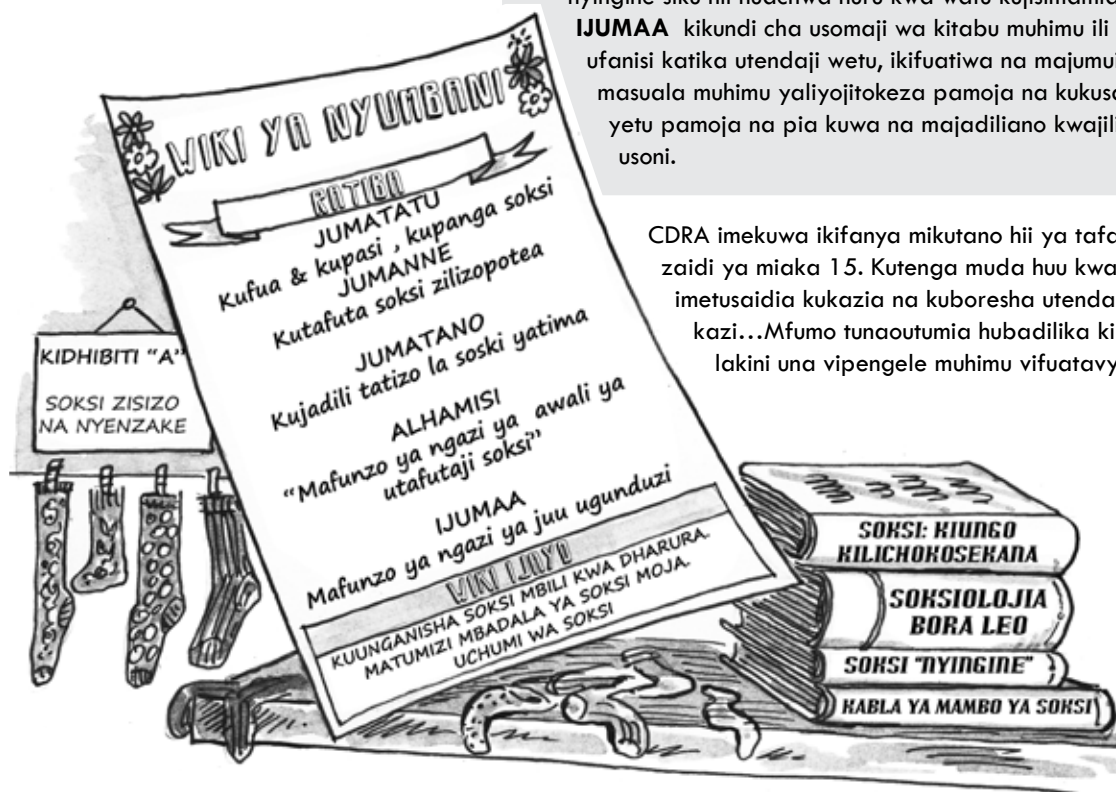 IJUMAA kikundi cha usomaji wa kitabu muhimu ili
ufanisi katika utendaji wetu, ikifuatiwa na
masuala muhimu yaliyojitokeza pamoja na
yetu pamoja na pia kuwa na majadiliano
usoni.
CDRA imekuwa ikifanya mikutano hii ya
zaidi ya miaka 15. Kutenga muda huu
imetusaidia kukazia na kuboresha
kazi...Mfumo tunaoutumia hubadilika
lakini una vipengele muhimu
WIKI YA NYUMBANI
RATIBA
JUMATATU
Kufua & kupasi , kupanga soksi
JUMANNE
Kutafuta soksi zilizopotea
JUMATANO
Kujadili tatizo la soski yatima
ALHAMISI
“Mafunzo ya ngazi ya awali ya
utafutaji soksi”
IJUMAA
Mafunzo ya ngazi ya juu ugunduzi
WIKI IJAYO
KUUNGANISHA SOKSI MBILI KWA DHARURA.
MATUMIZI MBADALA YA SOKSI MOJA.
UCHUMI WA SOKSI
KIDHIBITI “A”
SOKSI ZISIZO
NA NYENZAKE
SOKSI: KIUNGO
KILICHOKOSEKANA
SOKSIOLOJIA
BORA LEO
SOKSI “NYINGINE”
KABLA YA MAMBO YA SOKSI